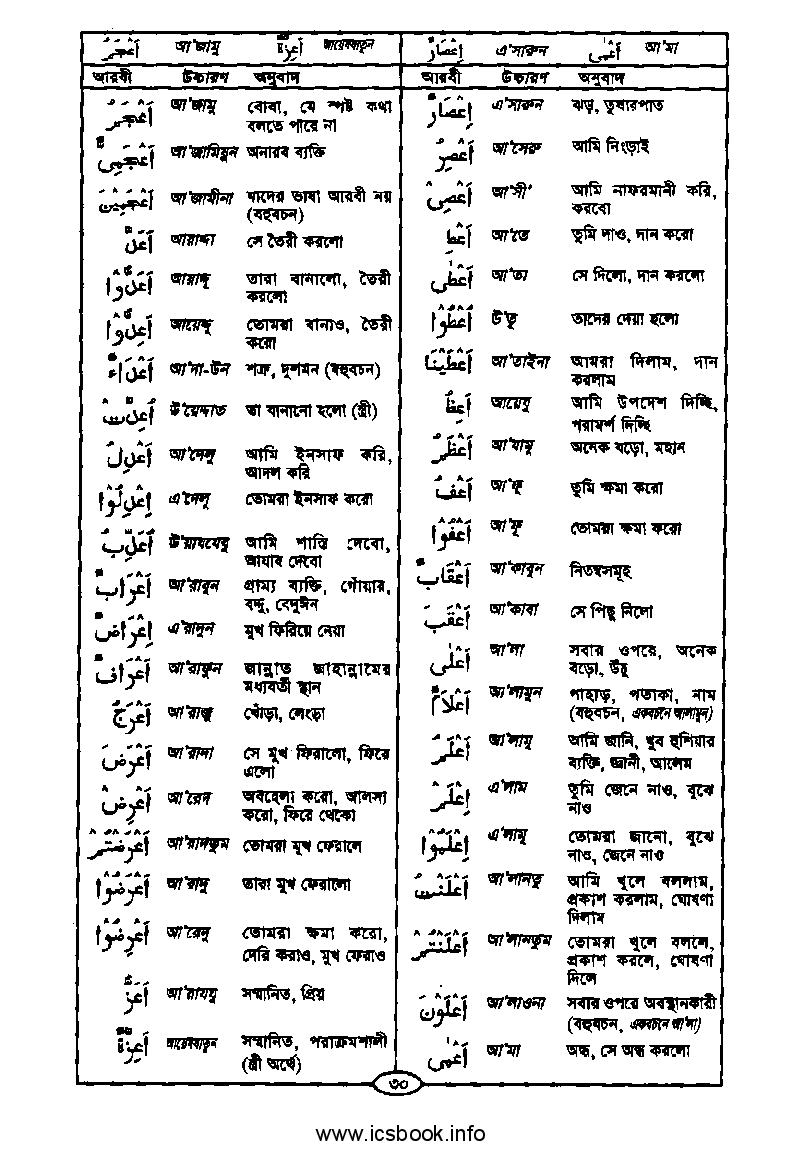 أَعْجَمُ আ'জামু أَعِزَّةٌ আয়েযযাতুন
আরবী উচ্চারণ অনুবাদ
أَعْجَمُ আ'জামু বোবা, যে স্পষ্ট কথা
বলতে পারে না
أَعْجَمِيٌّ আ'জামিয়ুন অনারব ব্যক্তি
أَعْجَمِيْنَ আ'জামীনা যাদের ভাষা আরবী নয়
(বহুবচন)
أَعَدَّ আয়াদ্দা সে তৈরী করলো
أَعَدُّوْا আয়াদ্দু তারা বানালো, তৈরী
করলো
أَعِدُّوْا আয়েদ্দু তোমরা বানাও, তৈরী
করো
أَعْدَاءٌ আ'দা-উন শত্রু, দুশমন (বহুবচন)
أُعِدَّتْ উ'য়েদ্দাত তা বানানো হলো (স্ত্রী)
أَعْدِلُ আ'দেলু আমি ইনসাফ করি,
আদল করি
إِعْدِلُوْا এ'দেলু তোমরা ইনসাফ করো
أُعَذِّبُ উ'য়াযযেবু আমি শাস্তি দেবো,
আযাব দেবো
أَعْرَابٌ আ'রাবুন গ্রাম্য ব্যক্তি, গোঁয়ার,
বদ্দু, বেদুঈন
إِعْرَاضٌ এ'রাদুন মুখ ফিরিয়ে নেয়া
أَعْرَافٌ আ'রাফুন জান্নাত জাহান্নামের
মধ্যবর্তী স্থান
أَعْرَجُ আ'রাজু খোঁড়া, লেংড়া
أَعْرَضَ আ'রাদা সে মুখ ফিরালো, ফিরে
এলো
أَعْرِضْ আ'রেদ অবহেলা করো, আলস্য
করো, ফিরে থেকো
أَعْرَضْتُمْ আ'রাদতুম তোমরা মুখ ফেরালে
أَعْرَضُوْا আ'রাদু তারা মুখ ফেরালো
أَعْرِضُوْا আ'রেদু তোমরা ক্ষমা করো,
দেরি করাও, মুখ ফেরাও
أَعَزُّ আ'য়াযযু সম্মানিত, প্রিয়
أَعِزَّةٌ আয়েযযাতুন সম্মানিত, পরাক্রমশালী
(স্ত্রী অর্থে)
إِعْصَارٌ এ'সারুন أَعْمٰى আ'মা
আরবী উচ্চারণ অনুবাদ
إِعْصَارٌ এ'সারুন ঝড়, তুষারপাত
أَعْصِرُ আ'সেরু আমি নিংড়াই
أَعْصِيْ আ'সী' আমি নাফরমানী করি,
করবো
أَعْطِ আ'তে তুমি দাও, দান করো
أَعْطٰى আ'তা সে দিলো, দান করলো
أُعْطُوْا উ'তু তাদের দেয়া হলো
أَعْطَيْنَا আ'তাইনা আমরা দিলাম, দান
করলাম
أَعِظُ আয়েযু আমি উপদেশ দিচ্ছি,
পরামর্শ দিচ্ছি
أَعْظَمُ আ'যামু অনেক বড়ো, মহান
أَعْفُ আ'ফু তুমি ক্ষমা করো
أَعْفُوْا আ'ফু তোমরা ক্ষমা করো
أَعْقَابٌ আ'কাবুন নিতম্বসমূহ
أَعْقَبَ আ'কাবা সে পিছু নিলো
أَعْلٰى আ'লা সবার ওপরে, অনেক
বড়ো, উঁচু
أَعْلَامٌ আ'লামুন পাহাড়, পতাকা, নাম
(বহুবচন, একবচনে আলামুন)
أَعْلَمُ আ'লামু আমি জানি, খুব হুশিয়ার
ব্যক্তি, জ্ঞানী, আলেম
إِعْلَمْ এ'লাম তুমি জেনে নাও, বুঝে
নাও
إِعْلَمُوْا এ'লামু তোমরা জানো, বুঝে
নাও, জেনে নাও
أَعْلَنْتُ আ'লানতু আমি খুলে বললাম,
প্রকাশ করলাম, ঘোষণা
দিলাম
أَعْلَنْتُمْ আ'লানতুম তোমরা খুলে বললে,
প্রকাশ করলে, ঘোষণা
দিলে
أَعْلَوْنَ আ'লাওনা সবার ওপরে অবস্থানকারী
(বহুবচন, একবচনে আ'লা)
أَعْمٰى আ'মা অন্ধ, সে অন্ধ করলো
৩০
www.icsbook.info